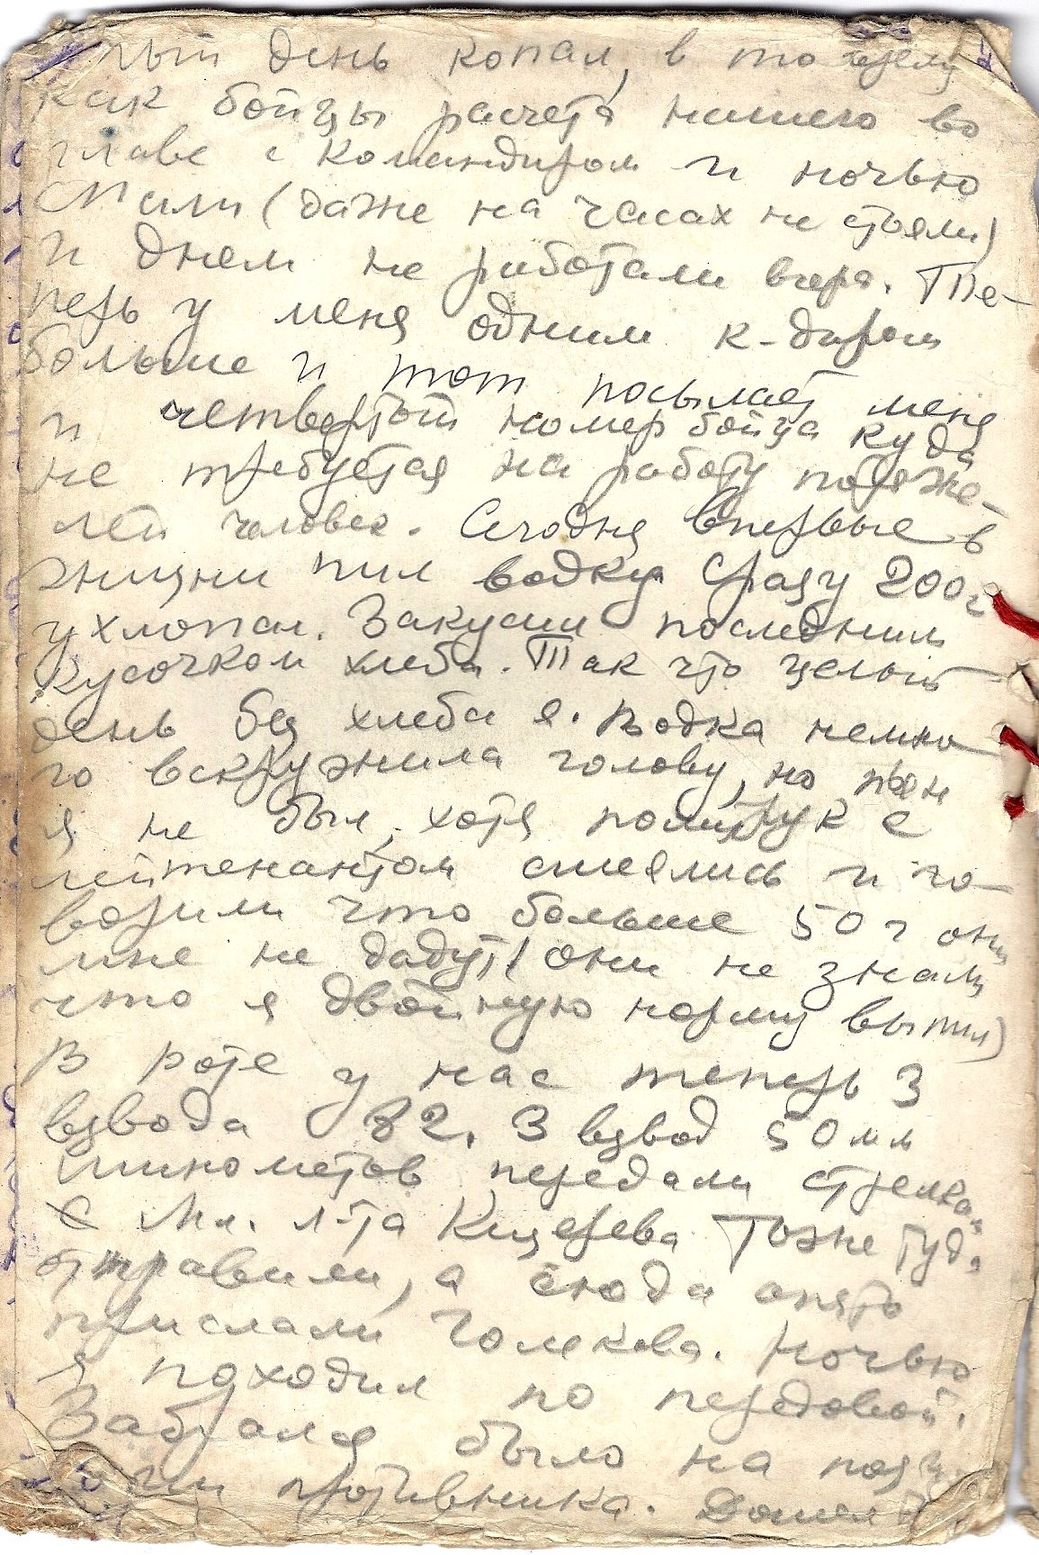 лый день копал, в то время
как бойцы расчета нашего во
главе с командиром и ночью
спали (даже на часах не стояли)
и днем не работали вчера. Те-
перь у меня одним к-диром
больше и тот посылает меня
и четвертый номер бойца куда
не требуется на работу потяже-
лей человек. Сегодня впервые в
жизни пил водку. Сразу 200г
ухлопал. Закусил последним
кусочком хлеба. Так что целый
день без хлеба я. Водка немно-
го вскружила голову, но пьян
я не был, хотя политрук с
лейтенантом смеялись и го-
ворили что больше 50 г они
мне не дадут (они не знали
что я двойную норму выпил)
В роте у нас теперь 3
взвода 82. 3 взвод 50 мм
минометов передали стрелкам
Мл. л-та Кицерева тоже туда
отправили, а сюда опять
прислали Голекова. Ночью
я походил по передовой.
Забрался было на пози
ции противника. Дошел